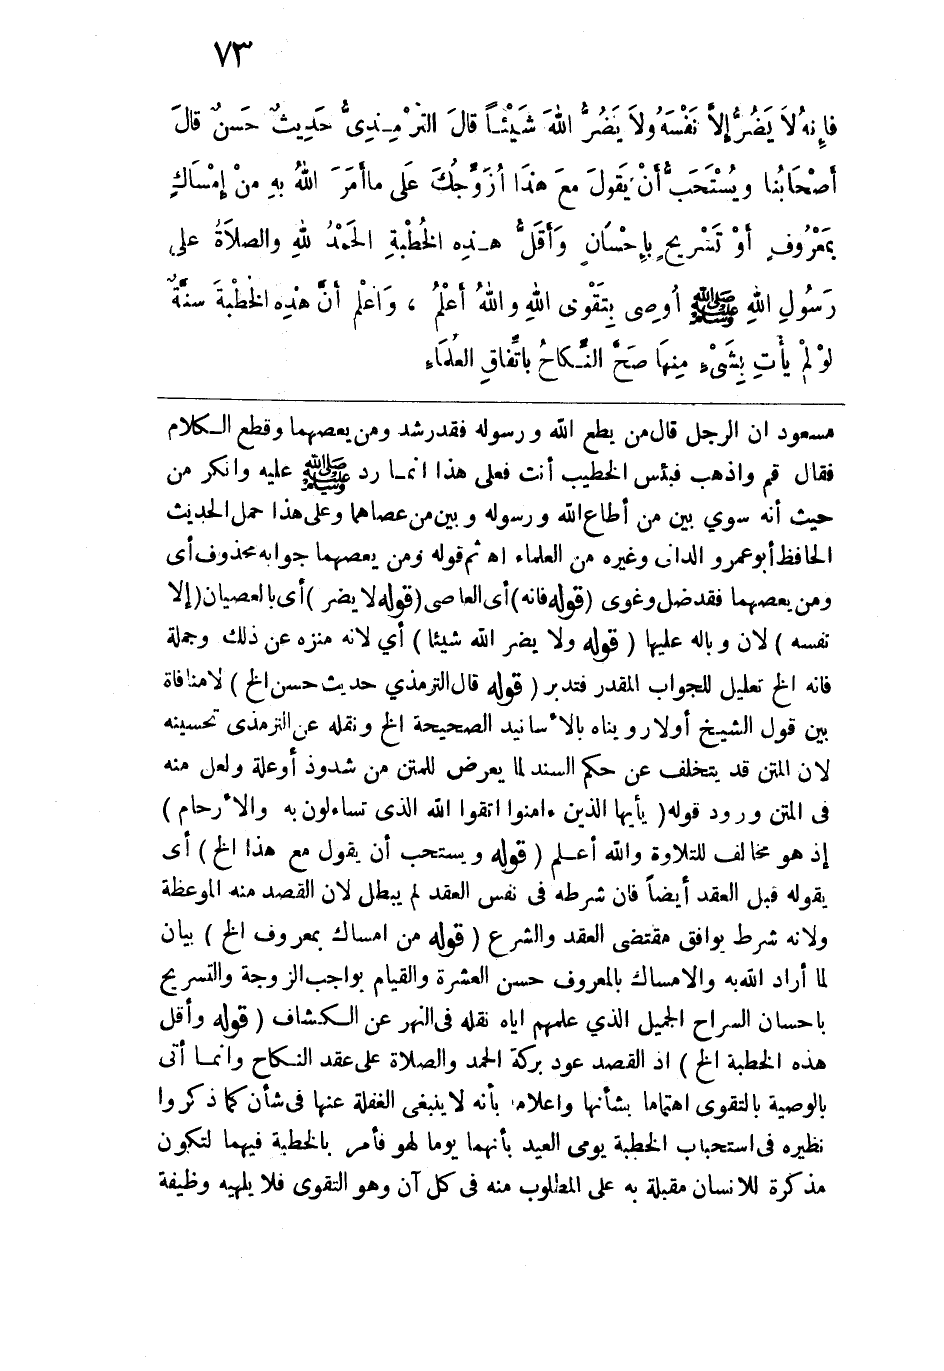 ٧٣
فإنهُ لاَ يَضُرُّ إلاَّ نَفْسَهُ ولاَ يَضُرُّ اللهَ شَيْئاً قالَ التِّرْمِذِىُّ حَدِيثٌ حَسَنٌ قالَ
أصْحَابُنا ويُسْتَحَبُّ أنْ يَقولَ معَ هذَا أزَوِّجُكَ عَلَى ماأمَرَ اللهُ بِهِ مِنْ إمْسَاكٍ
بمَعْرُوفٍ أوْ تَسْرِيحٍ بإِحْسَانٍ وَأقَلُّ هذِهِ الخُطْبَةِ الحَمْدُ للهِ والصلاَةُ على
رَسُولِ اللهِ ﷺ أوصِى بِتَقْوَى اللهِ واللهُ أعْلَمُ ، وَاعْلم أنَّ هٰذِهِ الخطْبةَ سنَّةٌ
لوْ لمْ يأْتِ بِشَىْءٍ مِنهَا صَحَّ النِّكاحُ باتِّفاقِ العُلمَاءِ
مسعود ان الرجل قال من يطع الله ورسوله فقدرشد ومن يعصهما وقطع الكلام
فقال قم واذهب فبئس الخطيب أنت فعلى هذا انما رد ﷺ عليه وانكر من
حيث أنه سوي بين من أطاع الله ورسوله وبين من عصاهما وعلى هذا حمل الحديث
الحافظ أبوعمرو الدانى وغيره من العلماء اه ثم قوله ومن يعصهما جوابه محذوف أى
ومن يعصهما فقدضل وغوى (قوله فانه) أى العاصى (قوله لا يضر) أى بالعصيان (إلا
نفسه) لان وباله عليها (قوله ولا يضر الله شيئا) أي لانه منزه عن ذلك وجملة
فانه الخ تعليل للجواب المقدر فتدبر (قوله قال الترمذي حديث حسن الخ) لامنافاة
بين قول الشيخ أولا رويناه بالأسانيد الصحيحة الخ ونقله عن الترمذى تحسينه
لان المتن قد يتخلف عن حكم السند لما يعرض للمتن من شذوذ أوعلة ولعل منه
فى المتن ورود قوله (يأيها الذين ءامنوا اتقوا الله الذى تساءلون به والأرحام)
إذ هو مخالف للتلاوة والله أعلم (قوله ويستحب أن يقول مع هذا الخ) أى
يقوله قبل العقد أيضاً فان شرطه فى نفس العقد لم يبطل لان القصد منه الموعظة
ولانه شرط يوافق مقتضى العقد والشرع (قوله من امساك بمعروف الخ) بيان
لما أراد الله به والامساك بالمعروف حسن العشرة والقيام بواجب الزوجة والتسريح
باحسان السراح الجميل الذي علمهم اياه نقله فى النهر عن الكشاف (قوله وأقل
هذه الخطبة الخ) اذ القصد عود بركة الحمد والصلاة على عقد النكاح وانما أتى
بالوصية بالتقوى اهتماما بشأنها واعلاما بأنه لا ينبغى الغفلة عنها فى شأن كما ذكروا
نظيره فى استحباب الخطبة يومى العيد بأنهما يوما لهو فأمر بالخطبة فيهما لتكون
مذكرة للانسان مقبلة به على المطلوب منه فى كل آن وهو التقوى فلا يلهيه وظيفة